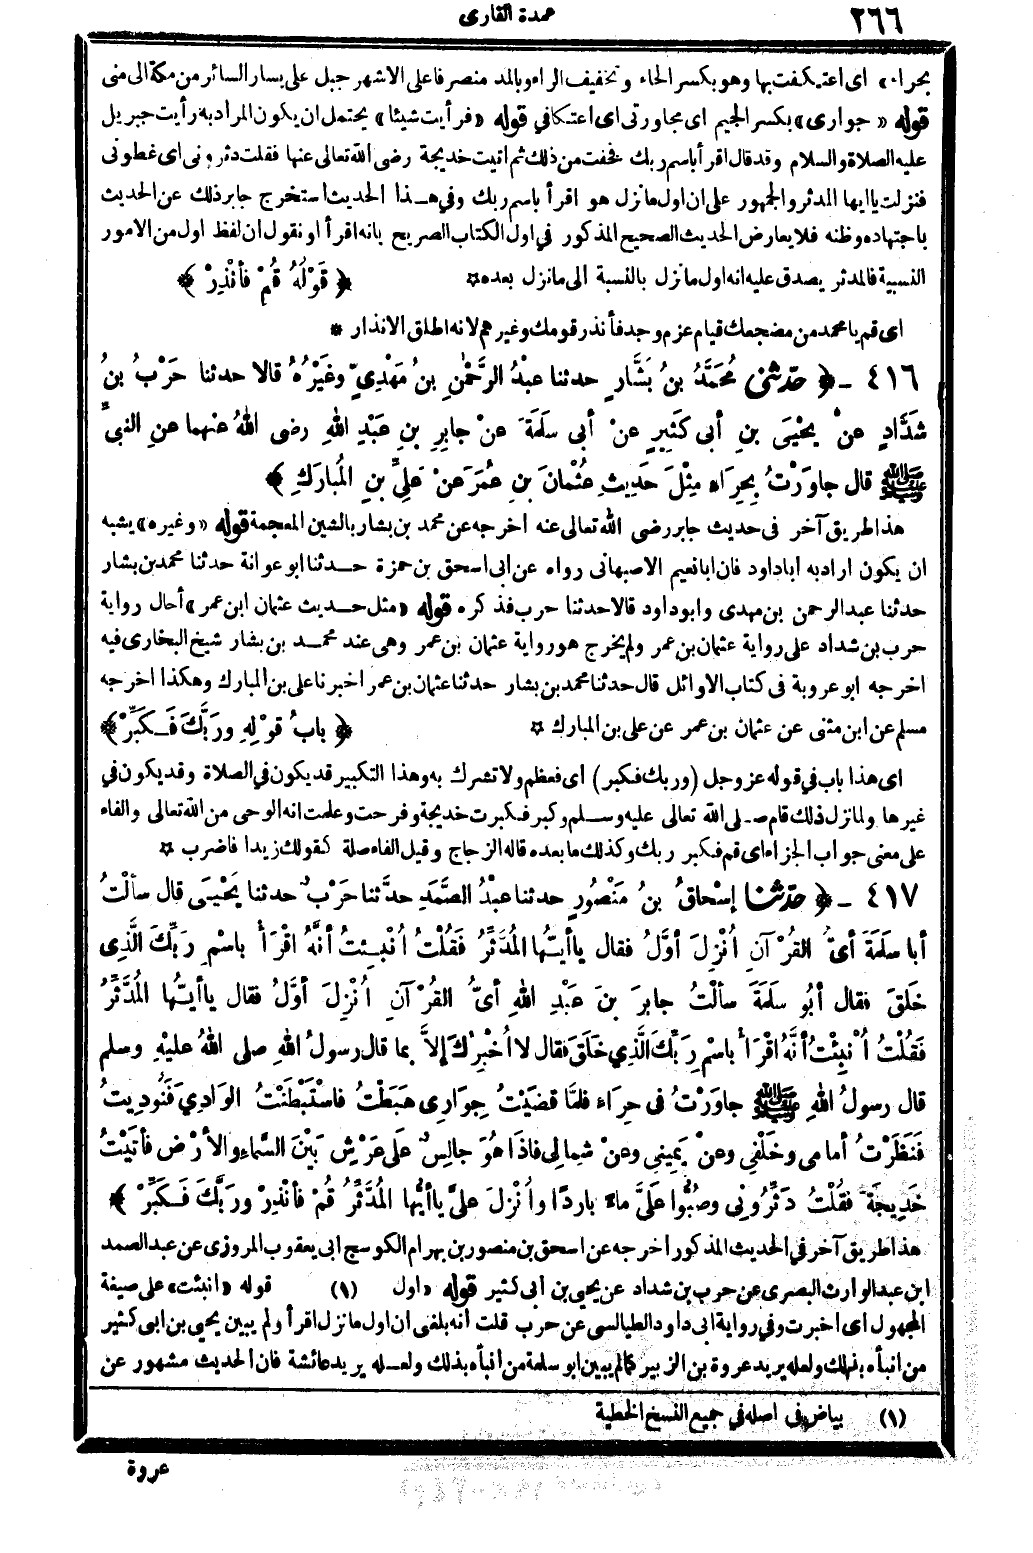 ٢٦٦
عمدة القارى
بحراء» اى اعتكفت بها وهو بكسر الحاء وتخفيف الراء وبالمد منصرفا على الاشهر جبل على يسار السائر من مكة الى منى
قوله «جوارى» بكسر الجيم اى مجاورتى اى اعتكافى قوله «فرأيت شيئا» يحتمل ان يكون المراد به رأيت جبريل
عليه الصلاة والسلام وقد قال اقرأ باسم ربك فخفت من ذلك ثم اتيت خديجة رضى الله تعالى عنها فقلت دثرونى اى غطونى
فنزلت يا ايها المدثر والجمهور على ان اول ما نزل هو اقرأ باسم ربك وفى هـذا الحديث استخرج جابر ذلك عن الحديث
باجتهاده وظنه فلا يعارض الحديث الصحيح المذكور فى اول الكتاب الصريح بانه اقرأ او نقول ان لفظ اول من الامور
النسبية فالمدثر يصدق عليه انه اول ما نزل بالنسبة الى ما نزل بعده ﴿ قَوْلُهُ قُمْ فأنْذِرْ ﴾
اى قم يا محمد من مضجعك قيام عزم وجد فأنذر قومك وغيرهم لانه اطلق الانذار *
٤١٦ ـ ﴿ حدّثنى مُحَمَّدُ بنُ بَشَّارٍ حدثنا عبْدُ الرَّحْمٰنِ بنُ مَهْدِيٍّ وغَيْرُهُ قالا حدثنا حَرْبُ بنُ
شَدَّادٍ عنْ يَحْيَى بنِ أبى كَثِيرٍ عنْ أبى سلَمَةَ عنْ جابِرِ بنِ عَبْدِ اللهِ رضى اللهُ عنْهما عنِ النبىِّ
ﷺ قال جاوَرْتُ بِحِرَاءٍ مِثْلَ حَدِيثِ عُثْمانَ بنِ عُمَرَ عنْ علِىِّ بنِ المُبارَكِ ﴾
هذا طريق آخر فى حديث جابر رضى الله تعالى عنه اخرجه عن محمد بن بشار بالشين المعجمة قوله «وغيره» يشبه
ان يكون اراد به اباداود فان ابا نعيم الاصبهانى رواه عن ابى اسحق بن حمزة حـدثنا ابو عوانة حدثنا محمد بن بشار
حدثنا عبد الرحمن بن مهدى وابو داود قالا حدثنا حرب فذكره قوله «مثل حـديث عثمان ابن عمر» أحال رواية
حرب بن شداد على رواية عثمان بن عمر ولم يخرج هو رواية عثمان بن عمر وهى عند محمـد بن بشار شيخ البخارى فيه
اخرجه ابو عروبة فى كتاب الاوائل قال حدثنا محمد بن بشار حدثنا عثمان بن عمر اخبرنا على بن المبارك وهكذا اخرجه
مسلم عن ابن مثنى عن عثمان بن عمر عن على بن المبارك ﴿ بابُ قوْلِهِ وربَّكَ فَـكَبِّرْ ﴾
اى هذا باب فى قوله عز وجل (وربك فكبر) اى فعظم ولا تشرك به وهذا التكبير قد يكون فى الصلاة وقد يكون فى
غيرها ولما نزل ذلك قام صـلى الله تعالى عليه وسـلم وكبر فكبرت خديجة وفرحت وعلمت انه الوحى من الله تعالى والفاء
على معنى جواب الجزاء اى قم فكبر ربك وكذلك ما بعده قاله الزجاج وقيل الفاء صلة كقولك زيدا فاضرب
٤١٧ ـ ﴿ حدّثنا إسْحاقُ بنُ مَنْصُورٍ حدثنا عبْدُ الصَّمَدِ حدَّثنا حَرْبٌ حدثنا يَحْيـَى قال سألْتُ
أبا سلَمَةَ أىُّ القُرْآنِ أُنْزِلَ أوَّلُ فقال ياأيـُّها المُدَّثِّرُ فَقُلْتُ أُنْبِـئْتُ أنَّهُ اقْرَأْ باسْمِ رَبِّكَ الَّذِى
خلَقَ فقال أبُو سلَمَةَ سألْتُ جابِرَ بنَ عَبْدِ اللهِ أىُّ القُرْآنِ أُنْزِلَ أوَّلُ فقال ياأيـُّها المُدَّثِّرُ
فَقُلْتُ أُنْبِئْتُ أنَّهُ اقْرَأْ باسْمِ رَبِّكَ الَّذِي خلَقَ فقال لا أُخْبِرُكَ إلاَّ بما قال رسولُ اللهِ صلى اللهُ عليْهِ وسلم
قال رسولُ اللهِ ﷺ جاوَرْتُ فى حِرَاء فلمَّا قضَيْتُ جِوَارِى هبَطْتُ فاسْتَبْطَنْتُ الوَادِيَ فَنُودِيتُ
فَنَظَرْتُ أمامى وخَلْفِي وعنْ يَمِينِي وعنْ شمالِى فاذَا هُوَ جالِسٌ علَى عَرْشٍ بَيْنَ السَّماءِ والأرْضِ فأتَيْتُ
خَدِيجَةَ فقُلْتُ دَثِّرُونِى وصُبُّوا عَلَىَّ ماءً بارِدًا وأُنْزِلَ علَىَّ ياأيُّها المُدَّثِّرُ قُمْ فأنْذِرْ ورَبَّكَ فَـكَبِّرْ ﴾
هذا طريق آخر فى الحديث المذكور اخرجه عن اسحق بن منصور بن بهرام الكوسج ابى يعقوب المروزى عن عبد الصمد
ابن عبد الوارث البصرى عن حرب بن شداد عن يحيى بن أبى كثير قوله «اول (١) قوله «انبئت» على صيغة
المجهول اى اخبرت وفى رواية ابى داود الطيالسى عن حرب قلت أنه بلغنى ان اول ما نزل اقرأ ولم يبين يحيى بن ابى كثير
من انبأه بذلك ولعله يريد عروة بن الزبير كما لم يبين ابو سلمة من انبأه بذلك ولعـله يريد عائشة فان الحديث مشهور عن
(١) بياض فى اصله فى جميع النسخ الخطية
عروة